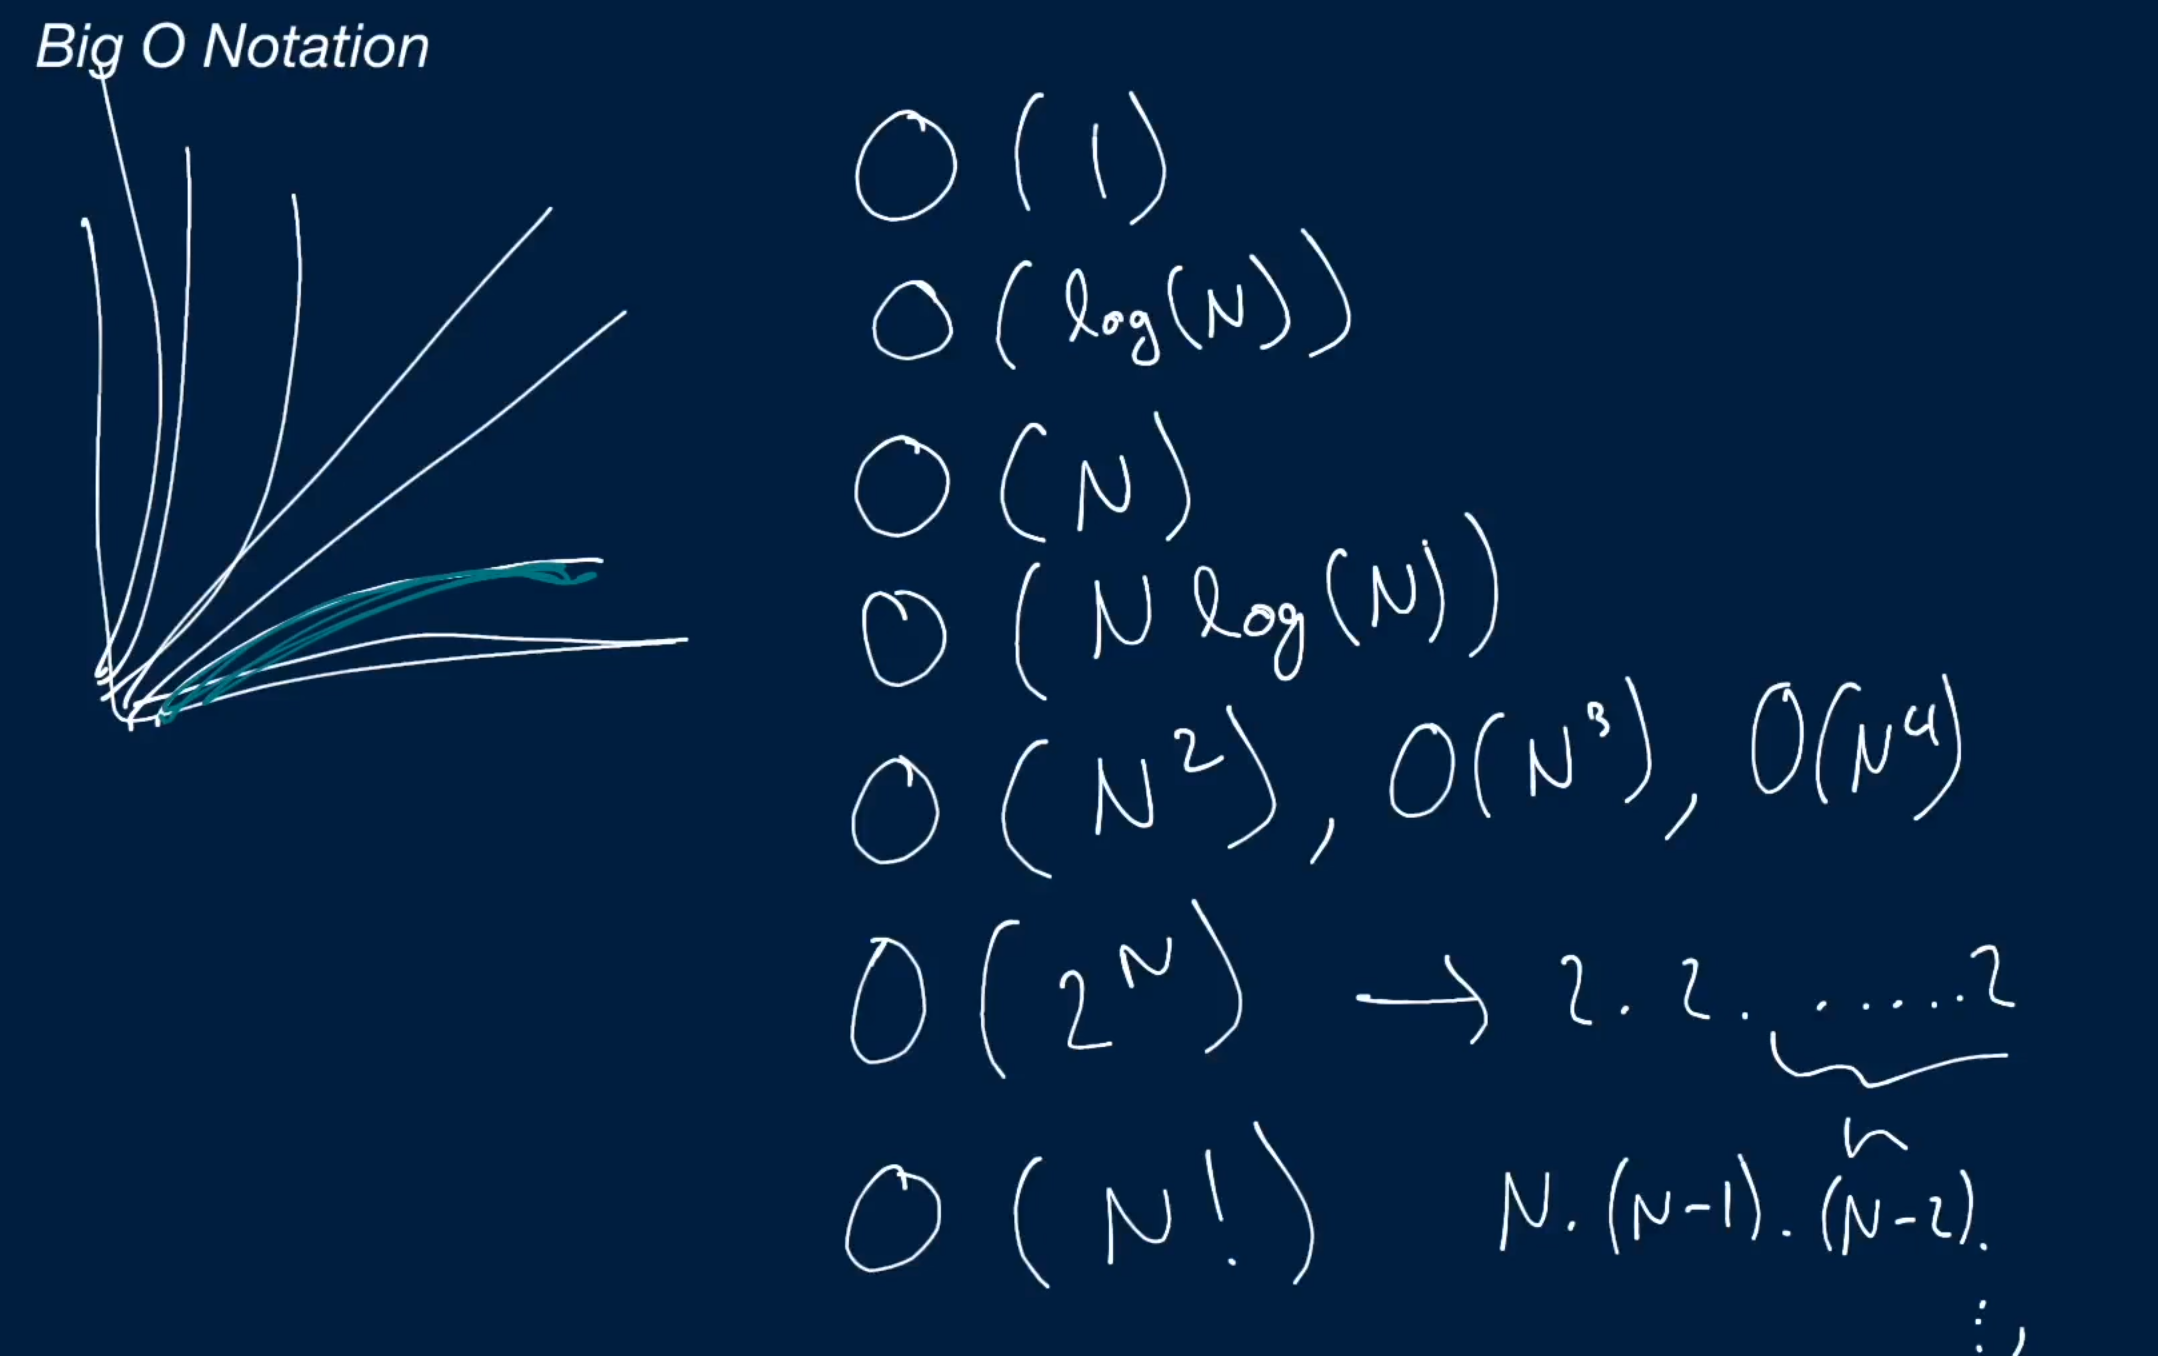 Big O Notation
O(1)
O(log(N))
O(N)
O(N log(N))
O(N²), O(N³), O(N⁴)
O(2ᴺ) → 2 . 2 . ...... 2
n
O(N!) N. (N-1). (N-2).
⋮,